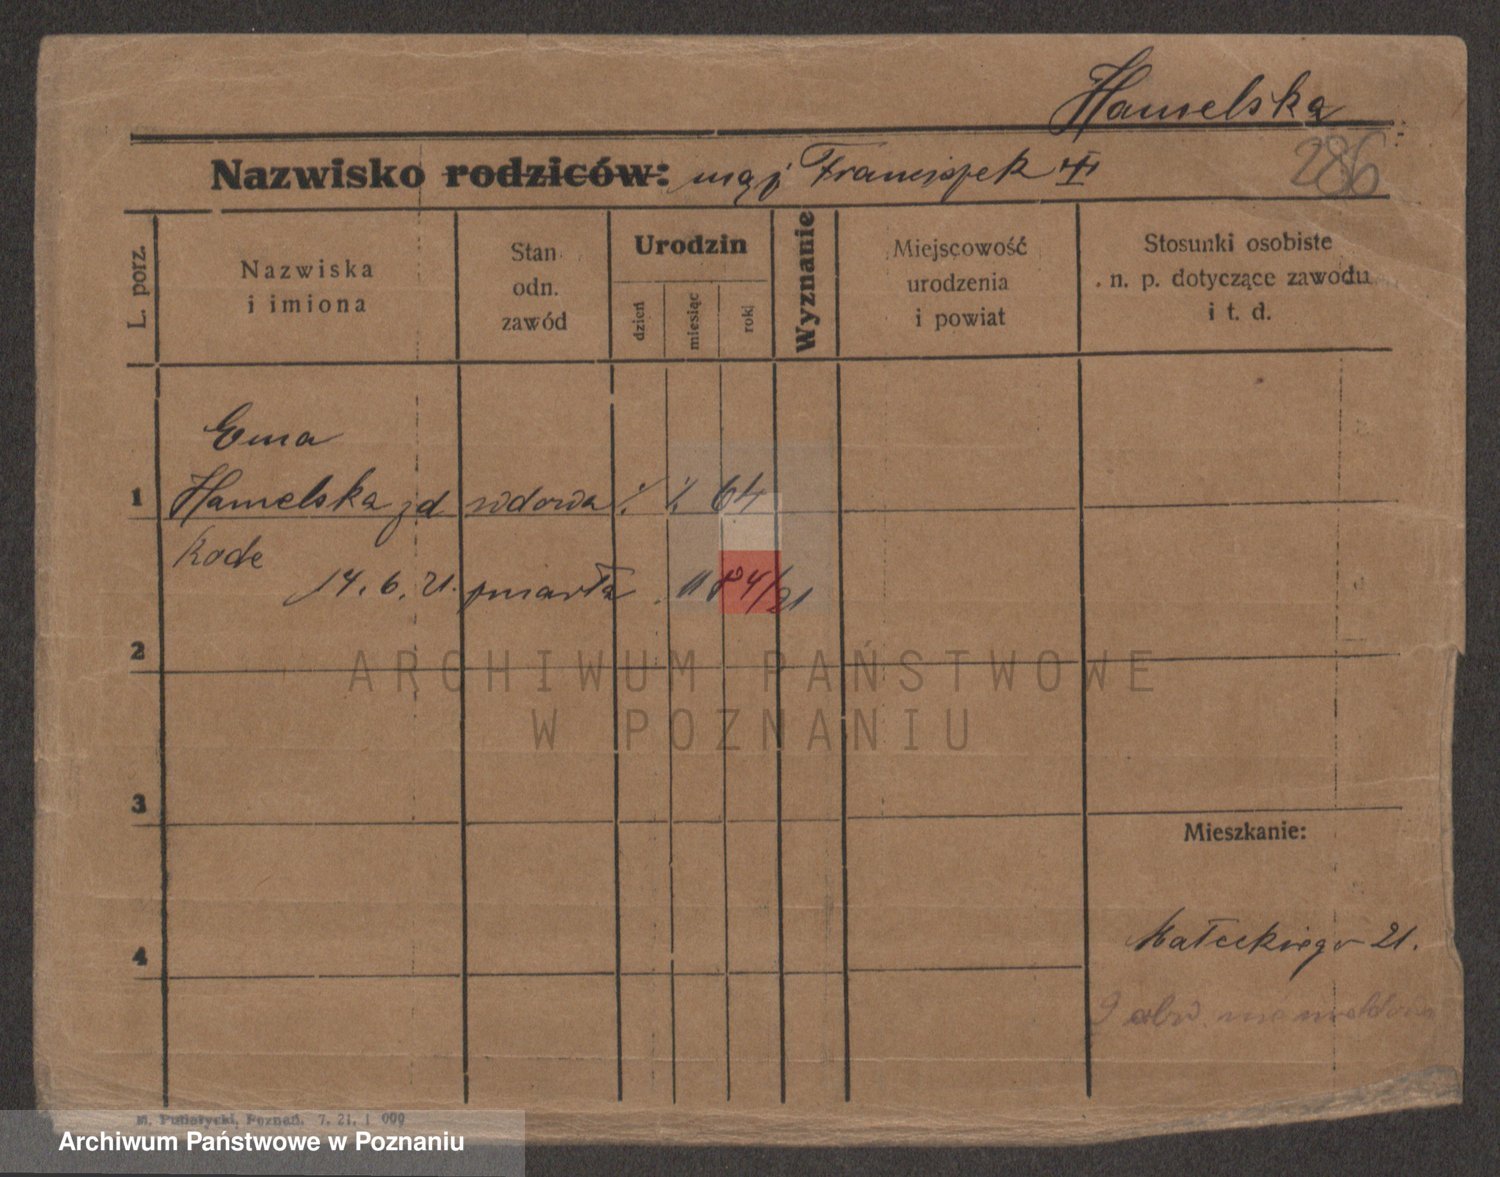 Hamelska
286
Nazwisko rodziców: mąż Franciszek
L. porz.
Nazwiska
i imiona
Stan
odn.
zawód
Urodzin
dzień
miesiąc
rok
Wyznanie
Miejscowość
urodzenia
i powiat
Stosunki osobiste
n. p. dotyczące zawodu
i t. d.
Ema
1 Hamelska zd wdowa 64
Kode
14. 6. 21. zmarła 84/21
2
3
4
Mieszkanie:
Małeckiego 21.
ARCHIWUM PAŃSTWOWE
W POZNANIU
Poznań. 7. 21. 1 000
Archiwum Państwowe w Poznaniu